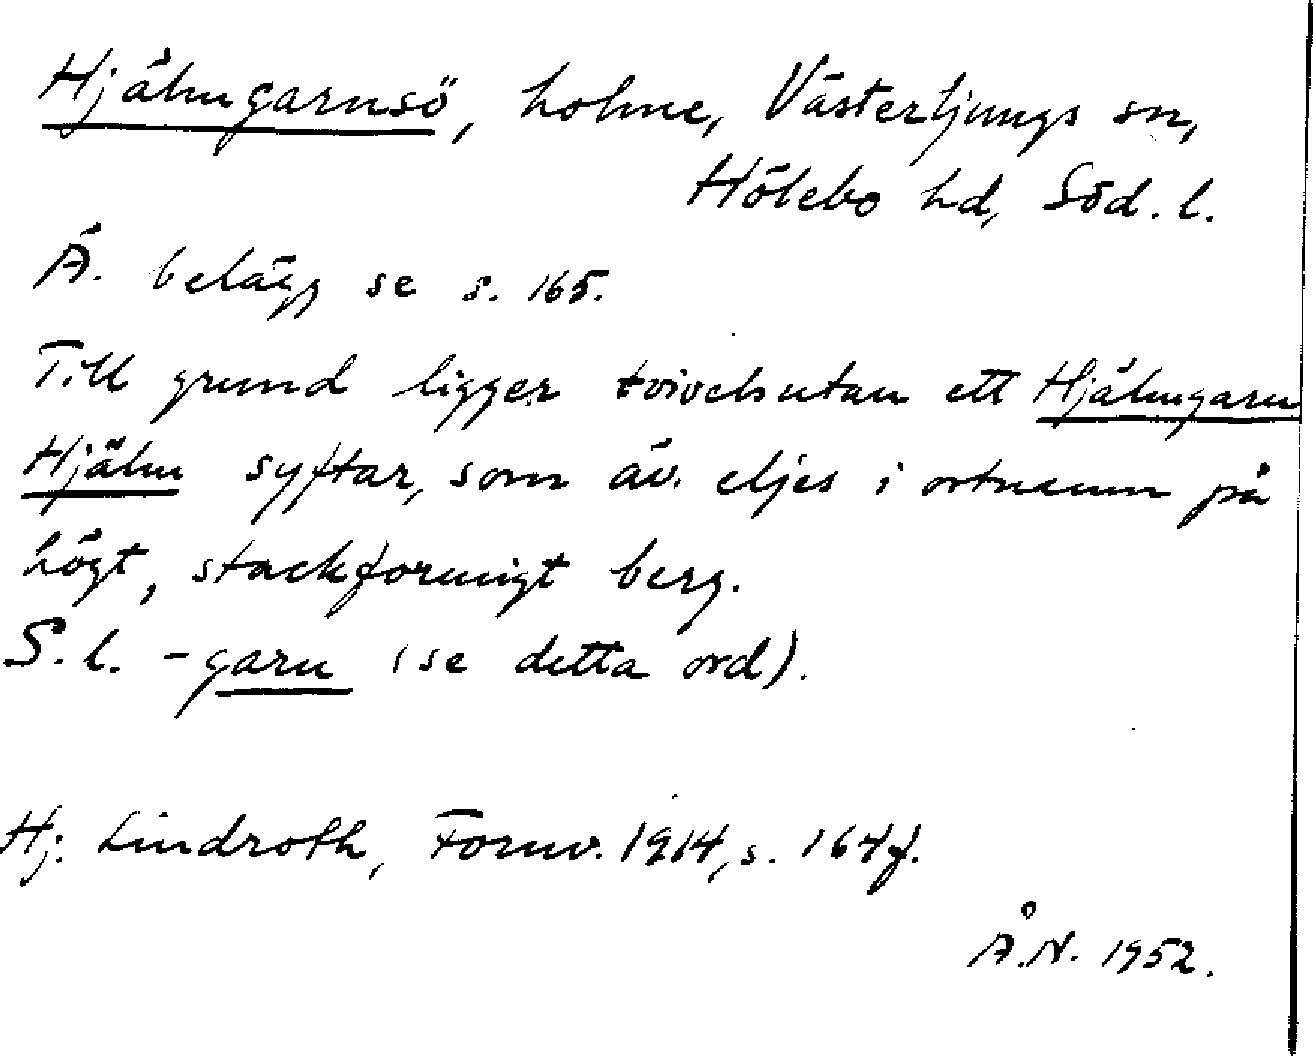 Hjälmgarnsö, holme, Västerljungs sn,
Hölebo hd, Söd. l.
Ä. belägg se s. 165.
Till grund ligger tvivelsutan ett Hjälmgarn
Hjälm syftar, som äv. eljes i ortnamn på
högt, stackformigt berg.
S. l. -garn (se detta ord).
Hj. Lindroth, Fornv. 1914, s. 164f.
Å.N. 1952.